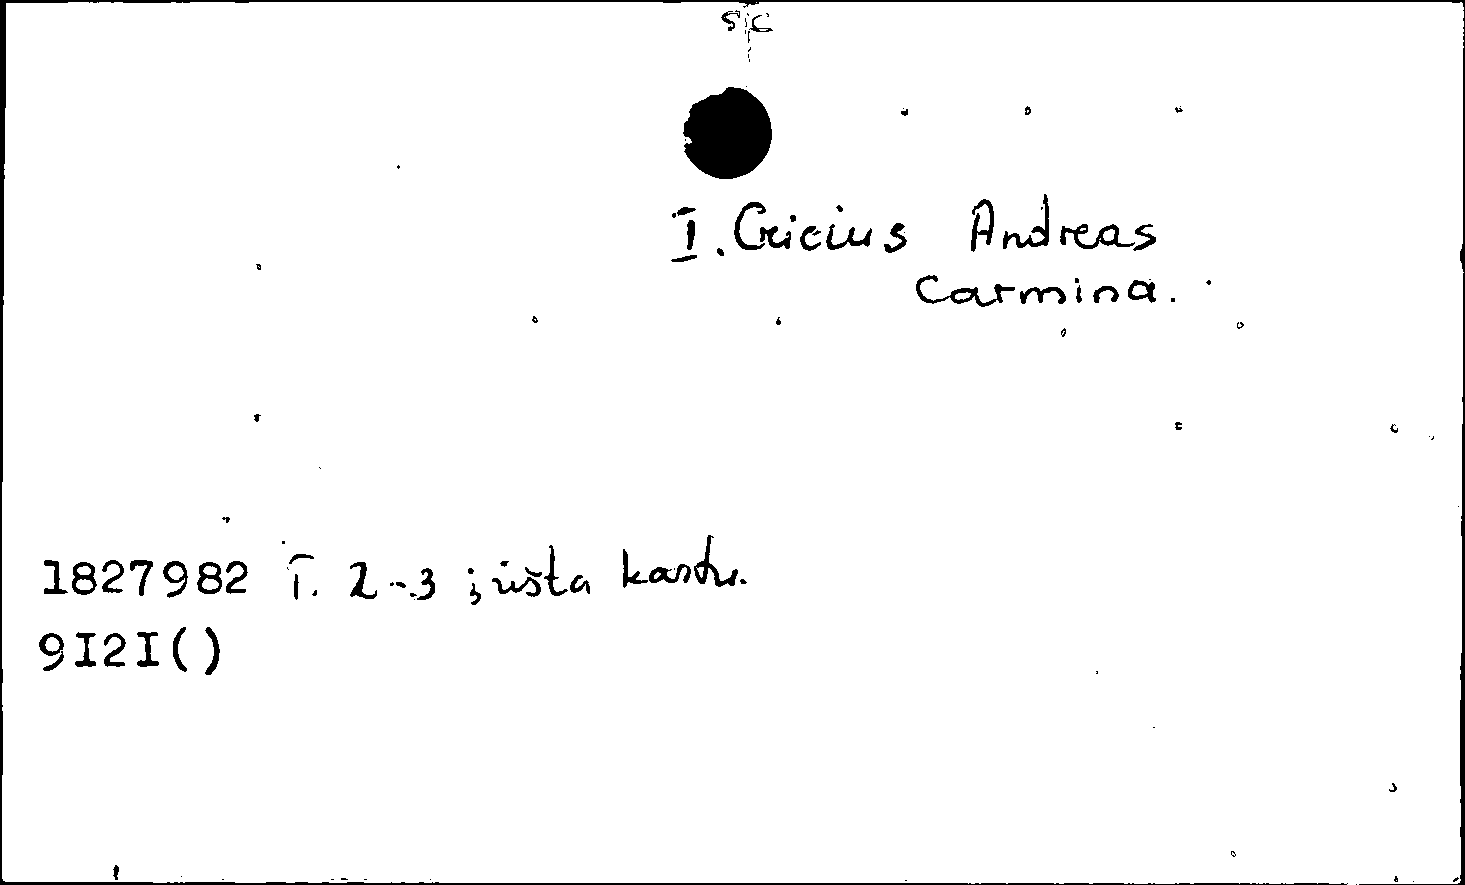 S|C
I. Cricius Andreas
Carmina.
1827982 T. 2-3 įrišta kartu.
9I2I()